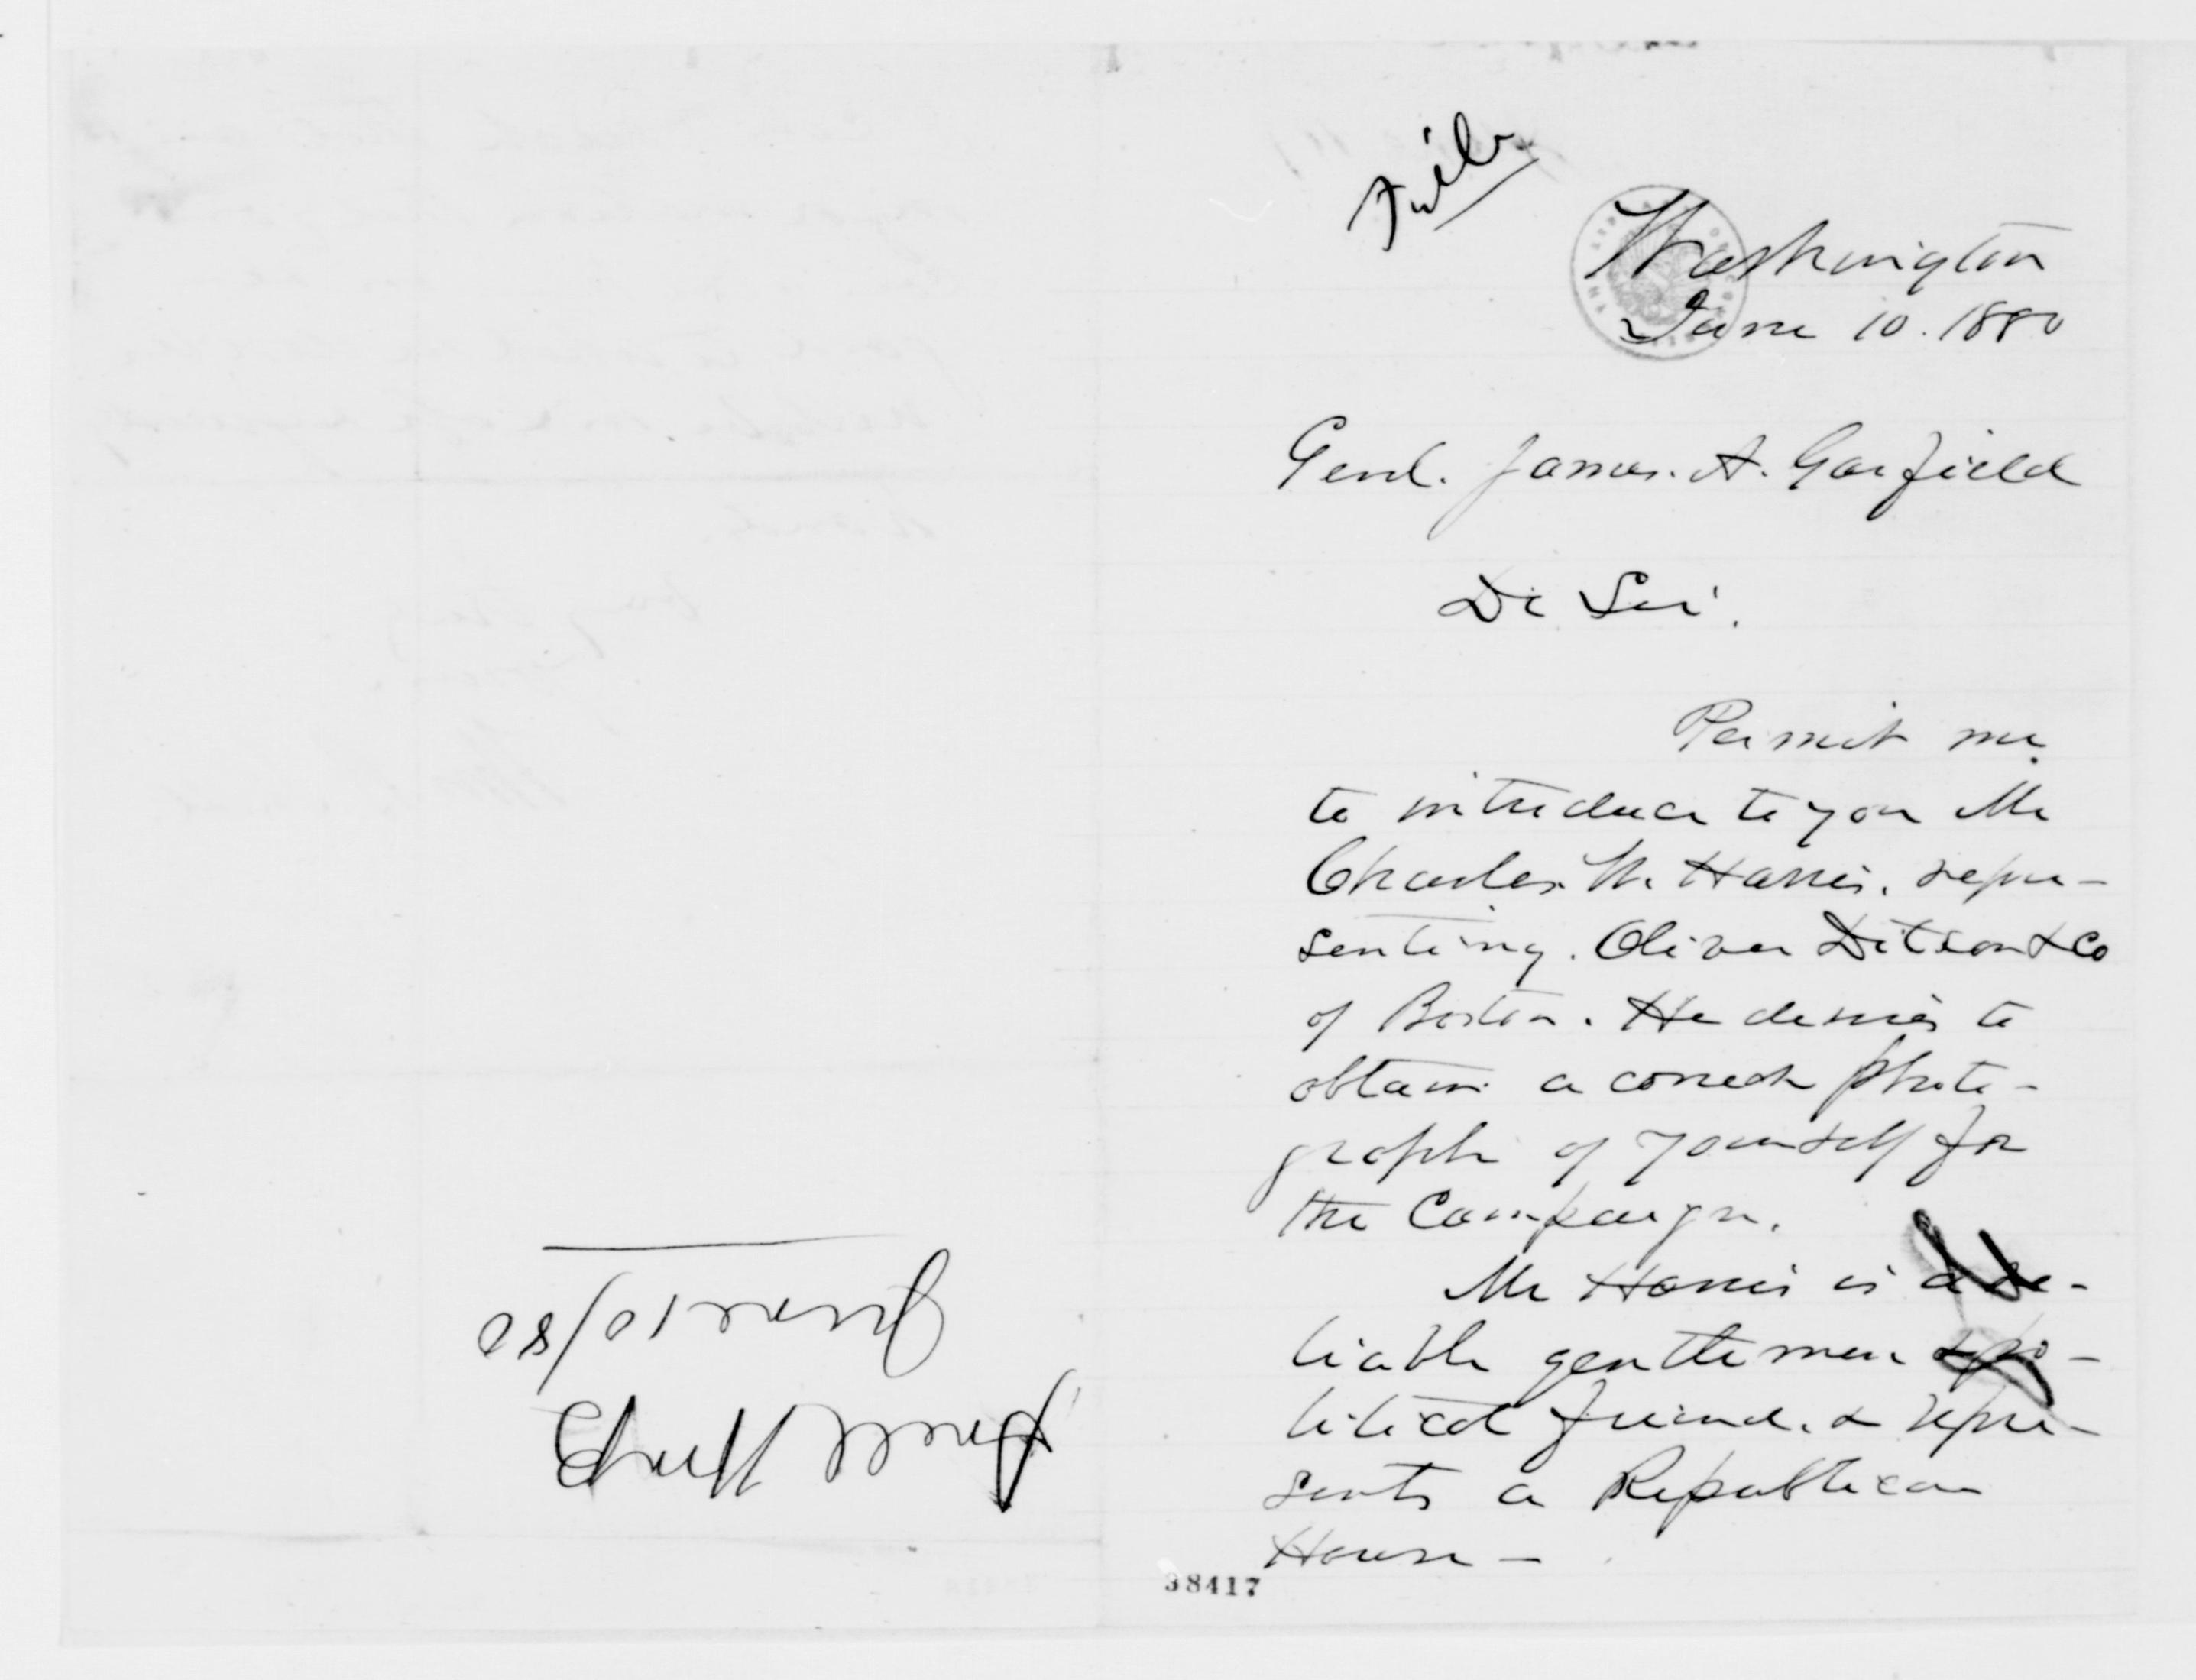 File
Washington
June 10. 1880
Genl. James. A. Garfield
Dr Sir.
Permit me
to introduce to you Mr
Charles. W. Harris. repre-
senting. Oliver Ditson & Co
of Boston. He desires to
obtain a correct photo-
graph of yourself for
the Campaign.
Mr Harris is a re-
liable gentleman & po-
litical friend. & repre-
sents a Republican
House —
38417
June 10/80